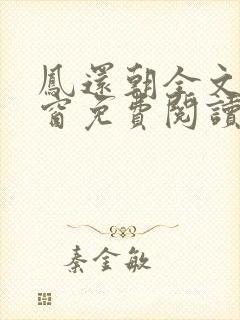 鳳還朝全文
窗免費閱讀
秦金敏